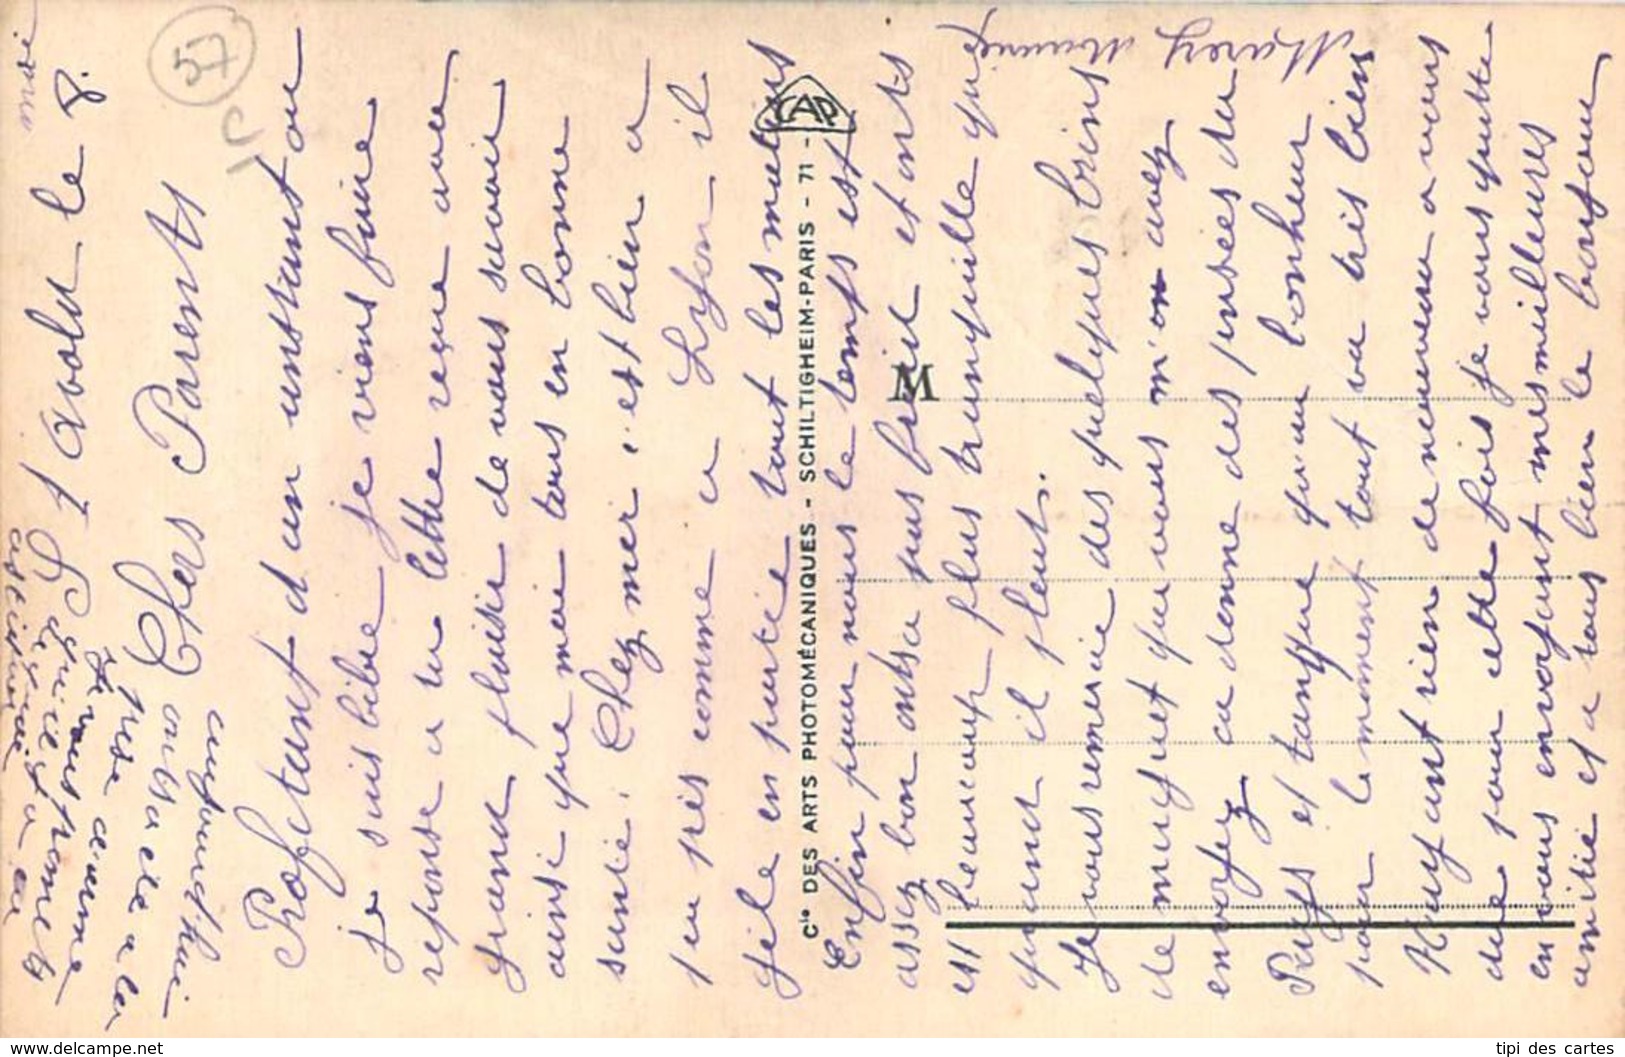 St Avold le 8
Chers Parents
Profitant d un instant ou
je suis libre je viens faire
reponse a ta lettre reçue avec
grand plaisir de vous savoir
ainsi que moi tous en bonne
santé. Chez moi c est bien a
peu près comme a Lyon il
gèle en partie tout les matins
Enfin pour nous le temps est
assez bon on ts a pas froid et on ts
est beaucoup plus tranquille que
quand il pleut.
Je vous remercie des quelques brins
de muguet que vous m'on avez
envoyez ca donne des pensées du
Pays et tanque qu'un bonheur
pour le moment tout va très bien
N ayant rien de nouveau a vous
dire pour cette fois je vous quitte
en vous envoyant mes meilleures
amitié et a tous bien le bonjour
Marcy
aujourd'hui
on ts a été a la
prise d arme
Je vous promet
Cie DES ARTS PHOTOMÉCANIQUES - SCHILTIGHEIM-PARIS - 71 -
CAP
M
57
www.delcampe.net
tipi des cartes